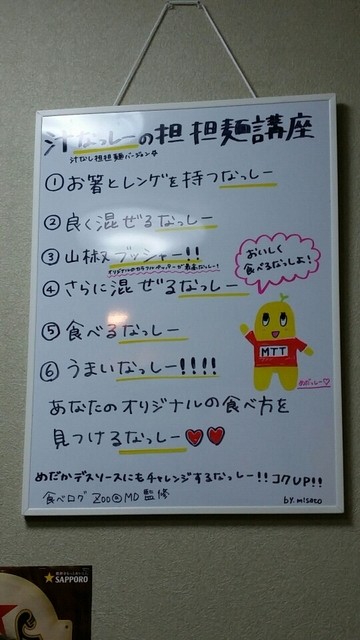 汁なっしーの担担麺講座
汁なし担担麺バージョン☆
①お箸とレンゲを持つなっしー
②良く混ぜるなっしー
③山椒ブッシャー!!
④さらに混ぜるなっしー
⑤食べるなっしー
⑥うまいなっしー!!!!
おいしく
食べるなっしよ!
MTT
めだっしー♡
あなたのオリジナルの食べ方を
見つけるなっしー♥♥
めだかデスソースにもチャレンジするなっしー!! コクUP!!
食べログ ZOO@MD 監修
by.misato
★SAPPORO